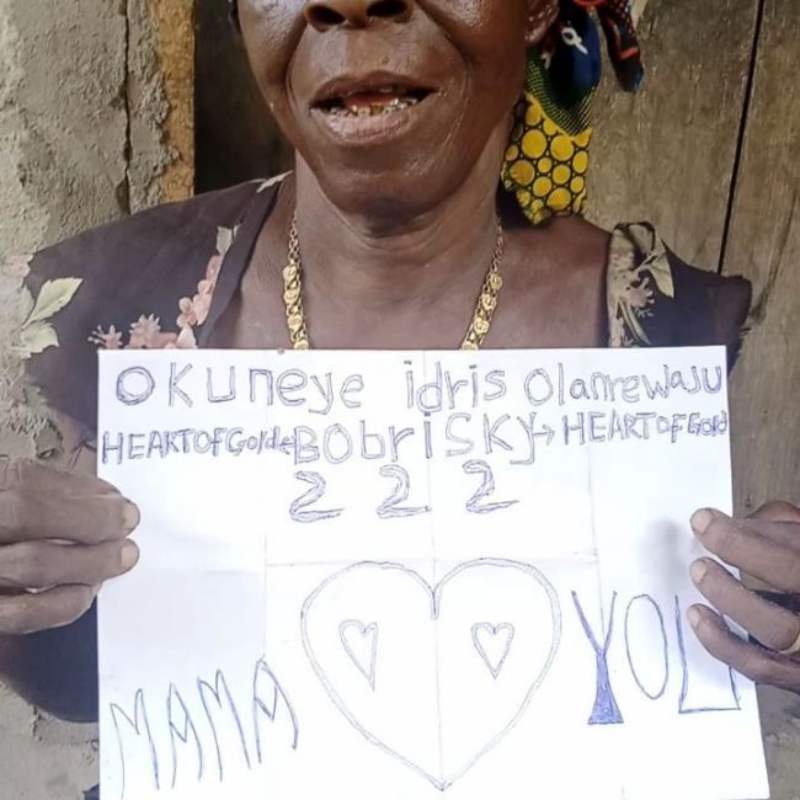 OKUNEYE idris Olanrewaju
HEARTOFGold←BObriSKY→HEARTOFGold
2 2 2
MAMA YOU